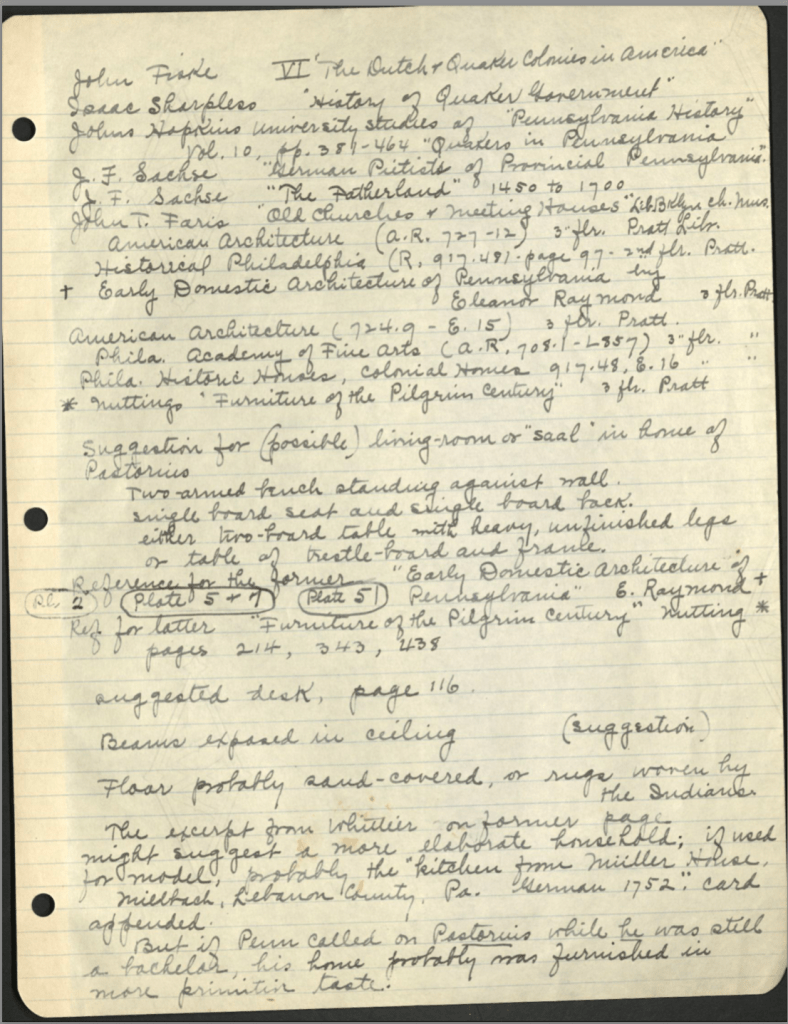 John Fiske VI "The Dutch & Quaker Colonies in America"
Isaac Sharpless "History of Quaker Government"
Johns Hopkins University Studies of "Pennsylvania History"
Vol. 10, pp. 381-464 "Quakers in Pennsylvania
J. F. Sachse "German Pietists of Provincial Pennsylvania".
J. F. Sachse "The Fatherland" 1450 to 1700
John T. Faris "Old Churches & Meeting Houses" Lib. Bklyn ch. Mus.
American Architecture (A.R. 727-12) 3" flr. Pratt Lib.
Historical Philadelphia (R. 917.481-page 97-2nd flr. Pratt.
+ Early Domestic Architecture of Pennsylvania by
Eleanor Raymond 3 flr. Pratt
American Architecture (724.9 - E. 15) 3 flr. Pratt.
Phila. Academy of Fine Arts (A.R. 708.1-L857) 3" flr. "
Phila. Historic Houses, Colonial Homes 917.48, E.16 " "
* Nuttings "Furniture of the Pilgrim Century" 3 flr. Pratt
Suggestion for (possible) living-room or "saal" in home of
Pastorius
Two-armed bench standing against wall.
single board seat and single board back.
either two-board table with heavy, unfinished legs
or table of trestle-board and frame.
Reference for the former "Early Domestic Architecture of
Pl. 2 Plate 5 + 7 Plate 51 Pennsylvania" E. Raymond +
Ref for latter "Furniture of the Pilgrim Century" Nutting *
pages 214, 343, 438
suggested desk, page 116.
Beams exposed in ceiling (suggestion)
Floor probably sand-covered, or rugs woven by
the Indians.
The excerpt from Whittier on former page
might suggest a more elaborate household; if used
for model, probably the "kitchen from Müller House,
Millbach, Lebanon County, Pa. German 1752". card
appended.
But if Penn called on Pastorius while he was still
a bachelor, his home probably was furnished in
more primitiv taste.